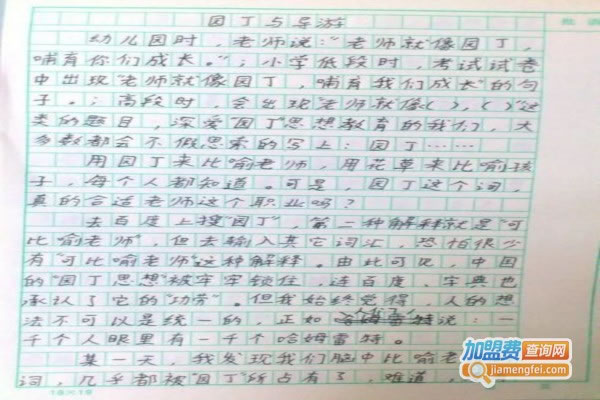 园丁与导游
批语
幼儿园时，老师说："老师就像园丁，
哺育你们成长。"；小学低段时，考试试卷
中出现"老师就像园丁，哺育我们成长"的句
子。；高段时，会出现"老师就像（），（）"这
类的题目，深爱"园丁"思想教育的我们，大
多数都会不假思索的写上：园丁……
用园丁来比喻老师，用花草来比喻孩
子，每个人都知道。可是，园丁这个词，
真的合适老师这个职业吗？
去百度上搜"园丁"，第二种解释就是"可
比喻老师"，但去输入其它词汇，恐怕很少
有"可比喻老师"这种解释。由此可见，中国
的"园丁思想"被牢牢锁住，连百度、字典也
承认了它的"功劳"。但我始终觉得，人的想
法不可以是统一的，正如说：一
千个人眼里有一千个哈姆雷特。
某一天，我发现我们脑中比喻老
词，几乎都被"园丁"所占有了，难道，
18×18
加盟费查询网
jiamengfei.com